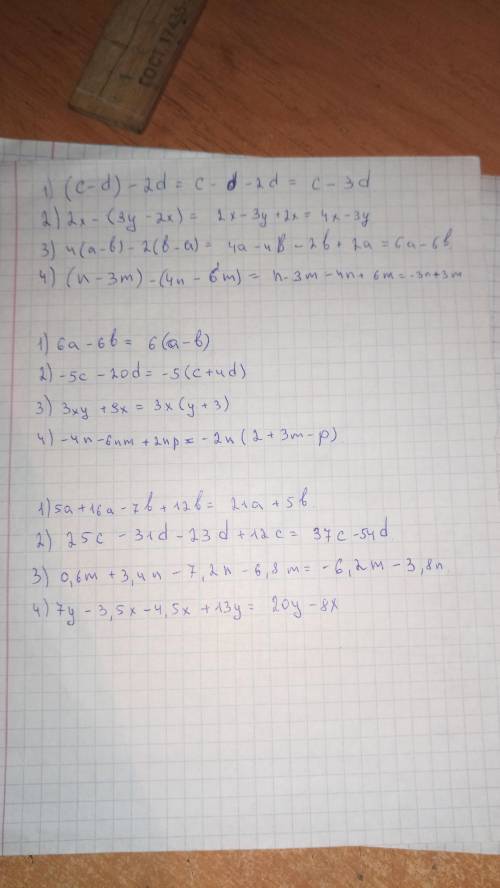 1
ГОСТ 17435
1) (c-d) - 2d = c - d - 2d = c - 3d
2) 2x - (3y - 2x) = 2x - 3y + 2x = 4x - 3y
3) 4(a-b) - 2(b-a) = 4a - 4b - 2b + 2a = 6a - 6b
4) (n - 3m) - (4n - 6m) = n - 3m - 4n + 6m = -3n + 3m
1) 6a - 6b = 6(a-b)
2) -5c - 20d = -5(c+4d)
3) 3xy + 9x = 3x(y+3)
4) -4n - 6nm + 2np = -2n(2+3m-p)
1) 5a + 16a - 7b + 12b = 21a + 5b
2) 25c - 31d - 23d + 12c = 37c - 54d
3) 0,6m + 3,4n - 7,2n - 6,8m = -6,2m - 3,8n
4) 7y - 3,5x - 4,5x + 13y = 20y - 8x